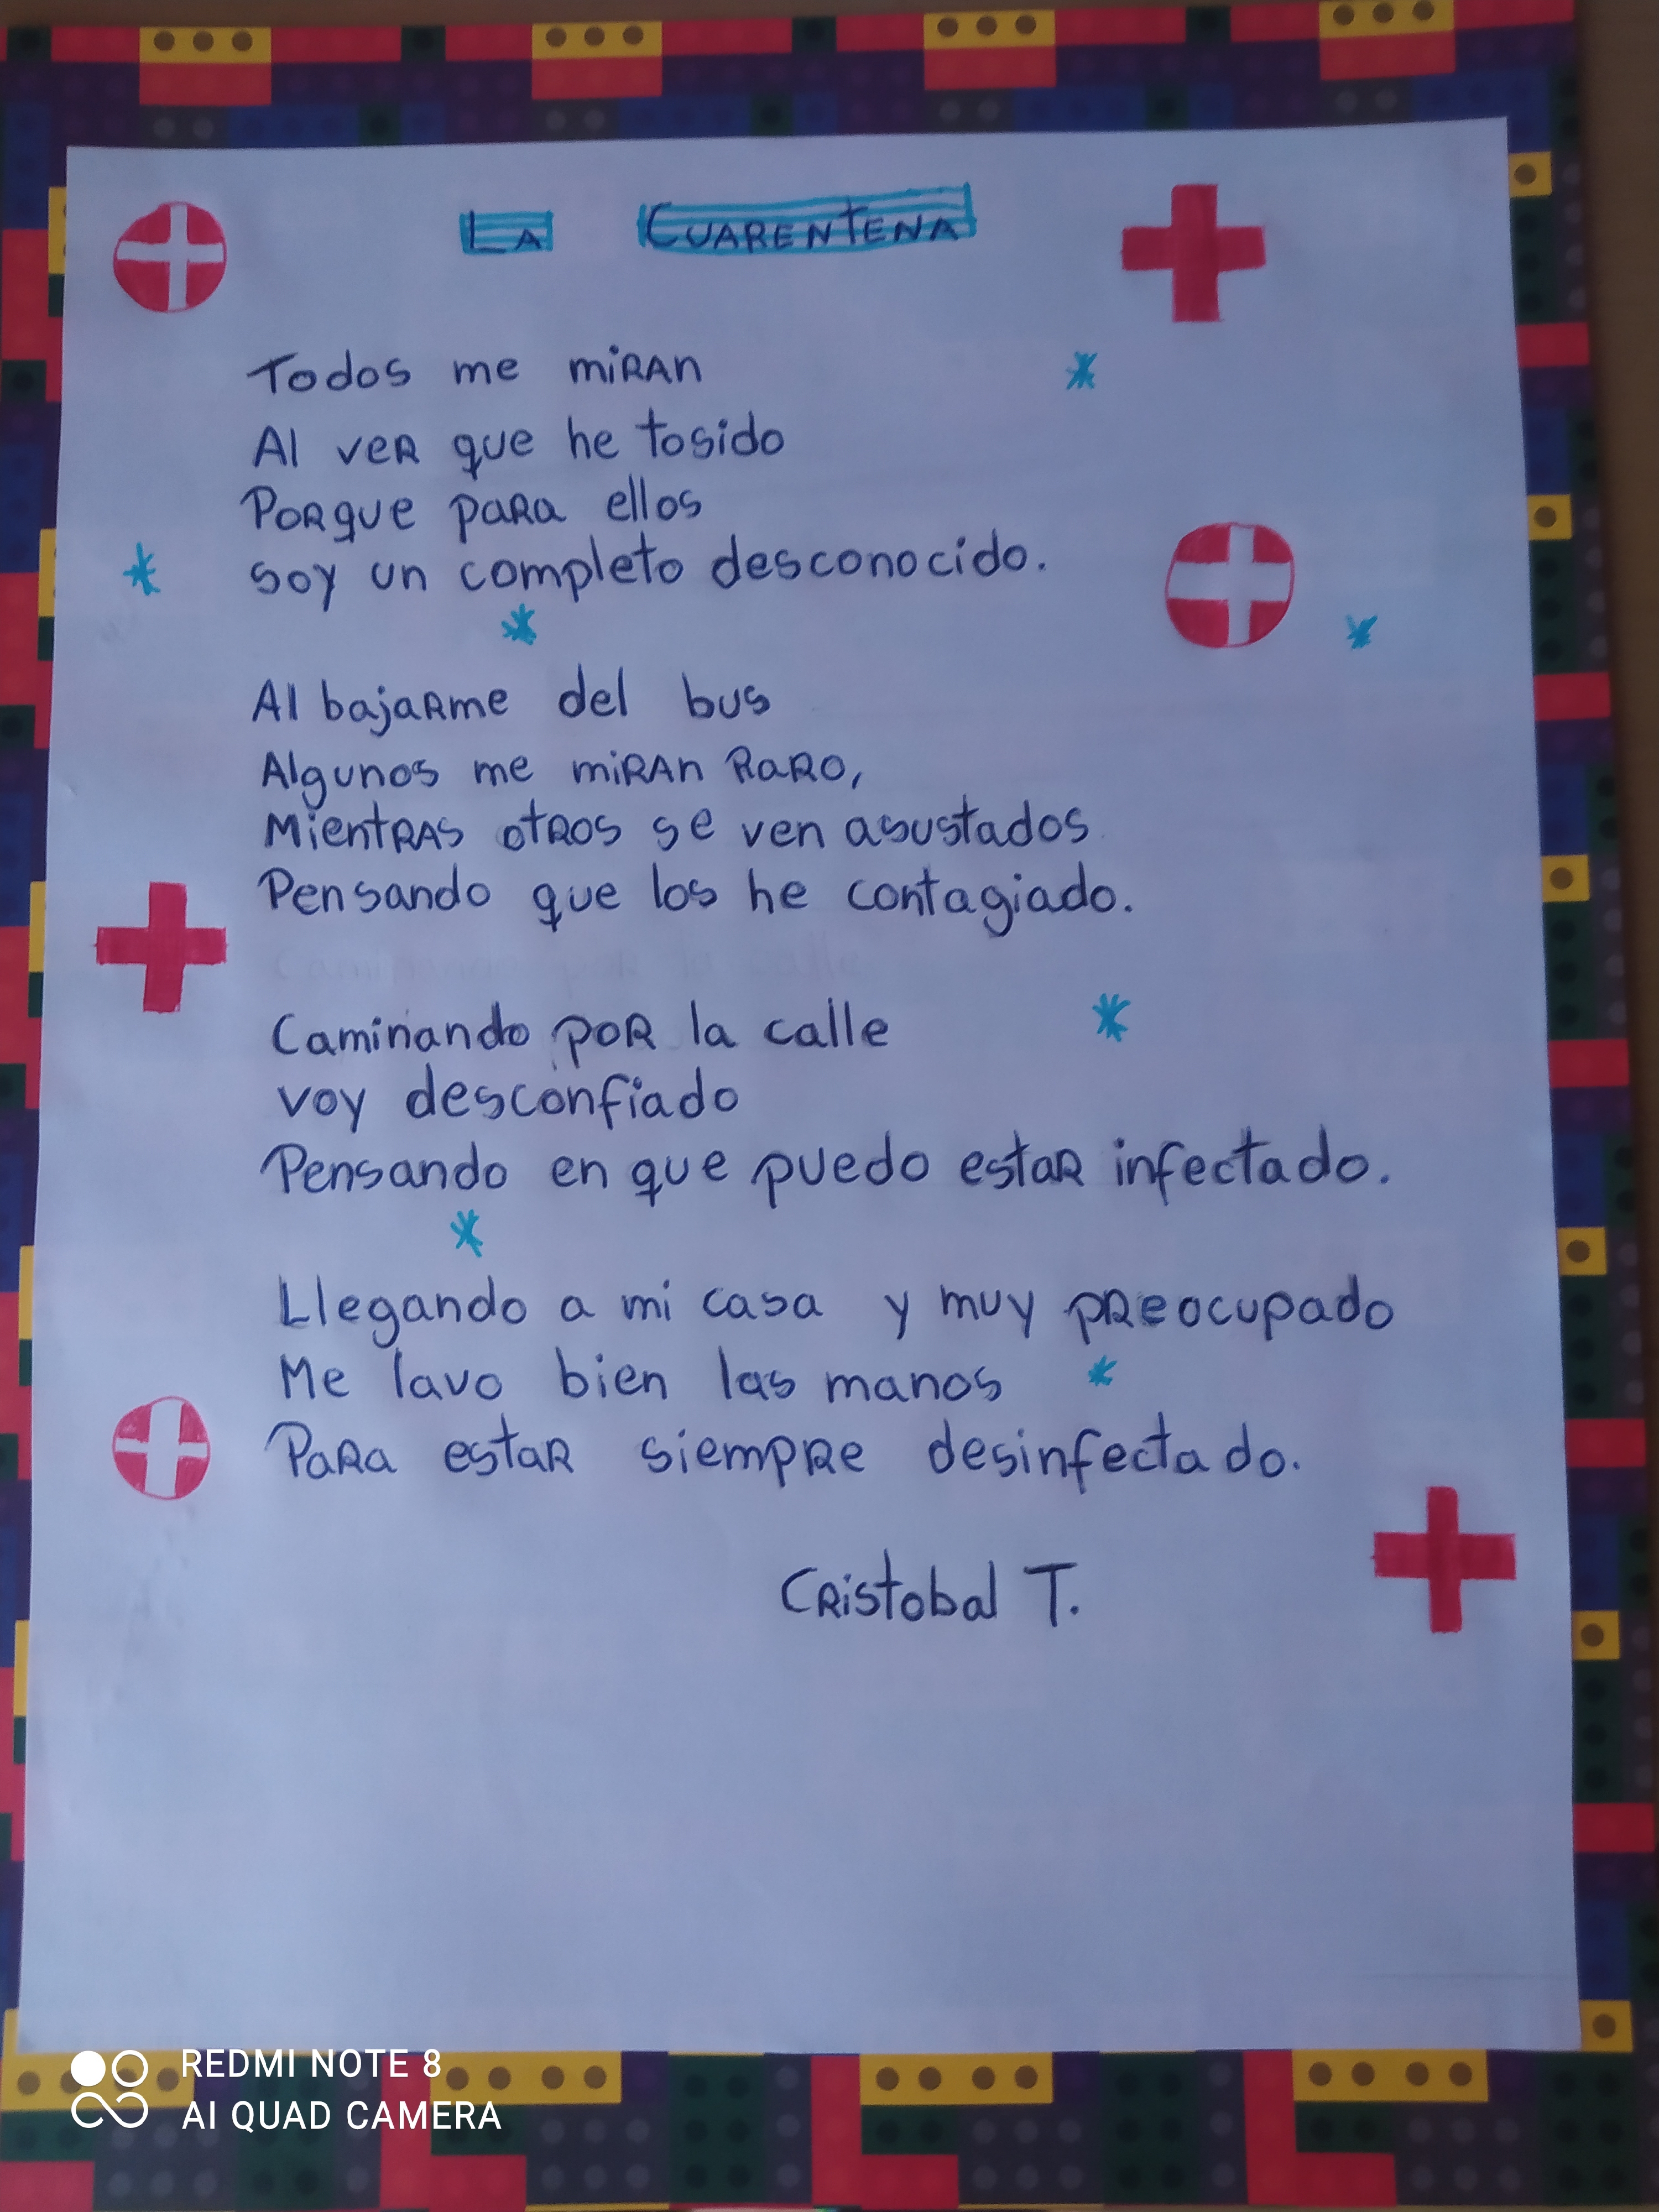 La Cuarentena
Todos me miran
Al ver que he tosido
Porque para ellos
soy un completo desconocido.
Al bajarme del bus
Algunos me miran raro,
Mientras otros se ven asustados
Pensando que los he contagiado.
Caminando por la calle
voy desconfiado
Pensando en que puedo estar infectado.
Llegando a mi casa y muy preocupado
Me lavo bien las manos
Para estar siempre desinfectado.
Cristobal T.
REDMI NOTE 8
AI QUAD CAMERA